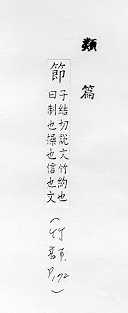 類篇
節
子結切說文竹約也
曰制也操也信也文
(竹部 P.172)